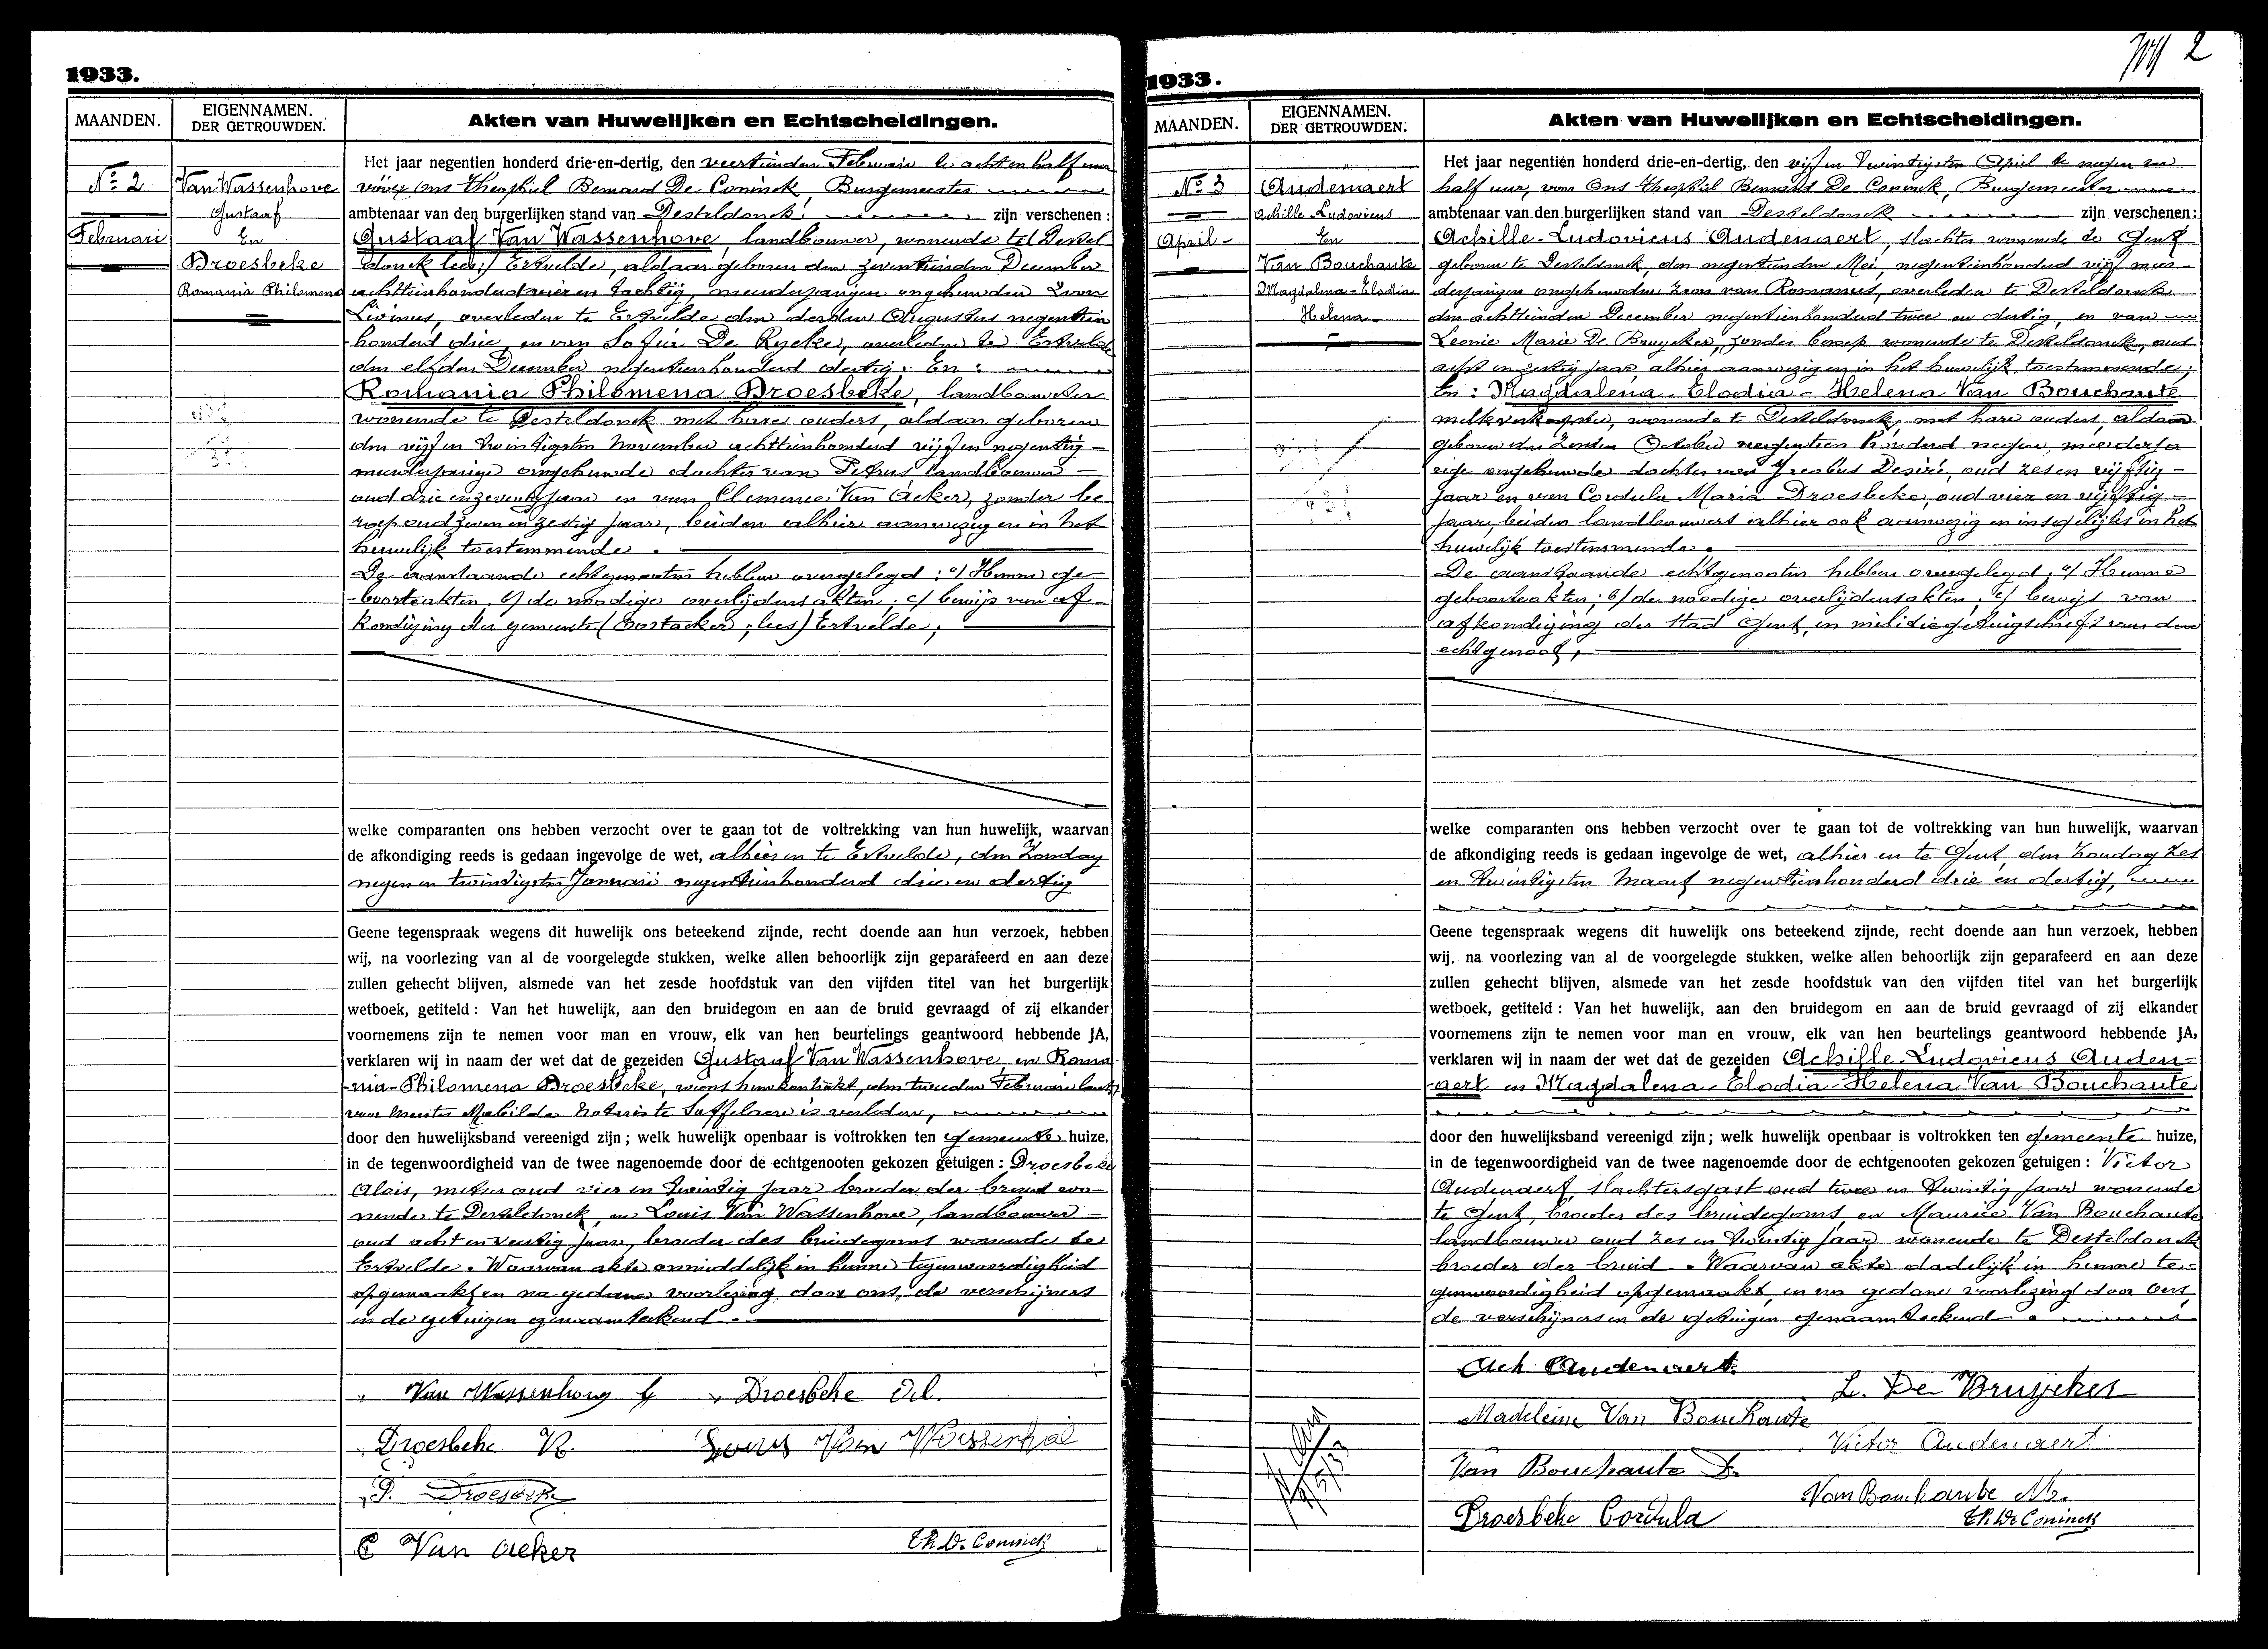 1933.
MAANDEN.
EIGENNAMEN.
DER GETROUWDEN.
Akten van Huwelijken en Echtscheidingen.
No 2
Februari
Van Wassenhove
Gustaaf
En
Droesbeke
Romania Philomena
Het jaar negentien honderd drie-en-dertig, den veertienden Februari te acht en half uur
vóór ons Theophiel Bernard De Coninck, Burgemeester
ambtenaar van den burgerlijken stand van Desteldonck, zijn verschenen:
Gustaaf Van Wassenhove, landbouwer, wonende te (Destel
donck lees:) Ertvelde, aldaar geboren den zeventienden December
achttienhonderd vier en tachtig, meerderjarigen ongehuwden zoon van
Livinus, overleden te Ertvelde den derden Augustus negentien
honderd drie, en van Sofie De Rycke, overleden te Ertvelde
den elfden December negentienhonderd dertig; En:
Romania Philomena Droesbeke, landbouwster
wonende te Desteldonck met hare ouders, aldaar geboren
den vijf en twintigsten November achttienhonderd vijf en negentig
meerderjarige ongehuwde dochter van Petrus landbouwer
oud drie en zeventig jaar en van Clemence Van Acker, zonder be
roep oud zeven en zestig jaar, beiden alhier aanwezig en in het
huwelijk toestemmende.
De aanstaande echtgenooten hebben overgelegd: a) Hunne ge-
-boorteakten, b) de noodige overlijdensakten; c) bewijs van af-
kondiging der gemeente (Oostacker, lees) Ertvelde,
welke comparanten ons hebben verzocht over te gaan tot de voltrekking van hun huwelijk, waarvan
de afkondiging reeds is gedaan ingevolge de wet, alhier en te Ertvelde, den Zondag
negen en twintigsten Januari negentienhonderd drie en dertig
Geene tegenspraak wegens dit huwelijk ons beteekend zijnde, recht doende aan hun verzoek, hebben
wij, na voorlezing van al de voorgelegde stukken, welke allen behoorlijk zijn geparafeerd en aan deze
zullen gehecht blijven, alsmede van het zesde hoofdstuk van den vijfden titel van het burgerlijk
wetboek, getiteld: Van het huwelijk, aan den bruidegom en aan de bruid gevraagd of zij elkander
voornemens zijn te nemen voor man en vrouw, elk van hen beurtelings geantwoord hebbende JA,
verklaren wij in naam der wet dat de gezeiden Gustaaf Van Wassenhove en Roma
-nia-Philomena Droesbeke, wiens huwkontrakt, den tweeden Februari
voor Meester Mabilde Notaris te Saffelaere is verleden,
door den huwelijksband vereenigd zijn; welk huwelijk openbaar is voltrokken ten gemeente huize,
in de tegenwoordigheid van de twee nagenoemde door de echtgenooten gekozen getuigen: Droesbeke
Aloïs, metser oud vier en twintig jaar broeder der bruid wo-
nende te Desteldonck, en Louis Van Wassenhove, landbouwer
oud acht en veertig jaar, broeder des bruidegoms wonende te
Ertvelde. Waarvan akte onmiddelijk in hunne tegenwoordigheid
opgemaakt en na gedane voorlezing door ons, de verschijners
en de getuigen genaamteekend.
Van Wassenhove G
Droesbeke Al.
Droesbeke R.
Louis Van Wassenhove
P. Droesbeke
C Van Acker
Th. De Coninck
2
1933.
MAANDEN.
EIGENNAMEN.
DER GETROUWDEN.
Akten van Huwelijken en Echtscheidingen.
No 3
April
Audenaert
Achille-Ludovicus
En
Van Bouchaute
Magdalena-Elodia
Helena
Het jaar negentien honderd drie-en-dertig, den vijf en twintigsten April te negen en
half uur, voor Ons Theophiel Bernard De Coninck, Burgemeester
ambtenaar van den burgerlijken stand van Desteldonck zijn verschenen:
Achille-Ludovicus Audenaert, slachter wonende te Gent
geboren te Desteldonck, den negentienden Mei, negentienhonderd vijf meer-
derjarigen ongehuwden zoon van Romanus, overleden te Desteldonck
den achttienden December negentienhonderd twee en dertig, en van
Leonie Marie De Bruycker, zonder beroep wonende te Desteldonck, oud
acht en zestig jaar, alhier aanwezig en in het huwelijk toestemmende;
En: Magdalena-Elodia-Helena Van Bouchaute
melkverkoopster, wonende te Desteldonck, met hare ouders, aldaar
geboren den zesden October negentien honderd negen, meerderja
rige ongehuwde dochter van Jacobus Desiré, oud zes en vijftig
jaar en van Cordula Maria Droesbeke, oud vier en vijftig
jaar, beiden landbouwers alhier ook aanwezig en insgelijks in het
huwelijk toestemmende.
De aanstaande echtgenooten hebben overgelegd: a) Hunne
geboorteakten; b) de noodige overlijdensakten; c) bewijs van
afkondiging der stad Gent, en militiegetuigschrift van den
echtgenoot,
welke comparanten ons hebben verzocht over te gaan tot de voltrekking van hun huwelijk, waarvan
de afkondiging reeds is gedaan ingevolge de wet, alhier en te Gent, den Zondag zes
en twintigsten Maart negentienhonderd drie en dertig,
Geene tegenspraak wegens dit huwelijk ons beteekend zijnde, recht doende aan hun verzoek, hebben
wij, na voorlezing van al de voorgelegde stukken, welke allen behoorlijk zijn geparafeerd en aan deze
zullen gehecht blijven, alsmede van het zesde hoofdstuk van den vijfden titel van het burgerlijk
wetboek, getiteld: Van het huwelijk, aan den bruidegom en aan de bruid gevraagd of zij elkander
voornemens zijn te nemen voor man en vrouw, elk van hen beurtelings geantwoord hebbende JA,
verklaren wij in naam der wet dat de gezeiden Achille-Ludovicus Auden-
-aert en Magdalena-Elodia-Helena Van Bouchaute
door den huwelijksband vereenigd zijn; welk huwelijk openbaar is voltrokken ten gemeente huize,
in de tegenwoordigheid van de twee nagenoemde door de echtgenooten gekozen getuigen: Victor
Audenaert, slachtersgast oud twee en twintig jaar wonende
te Gent, broeder des bruidegoms, en Maurice Van Bouchaute
landbouwer oud zes en twintig jaar wonende te Desteldonck
broeder der bruid. Waarvan akte dadelijk in hunne te-
genwoordigheid opgemaakt, en na gedane voorlezing door Ons,
de verschijners en de getuigen genaamteekend.
Ach Audenaert.
L. De Bruycker
Madeleine Van Bouchaute
Victor Audenaert
Van Bouchaute D.
Van Bouchaute M.
Droesbeke Cordula
Th. De Coninck